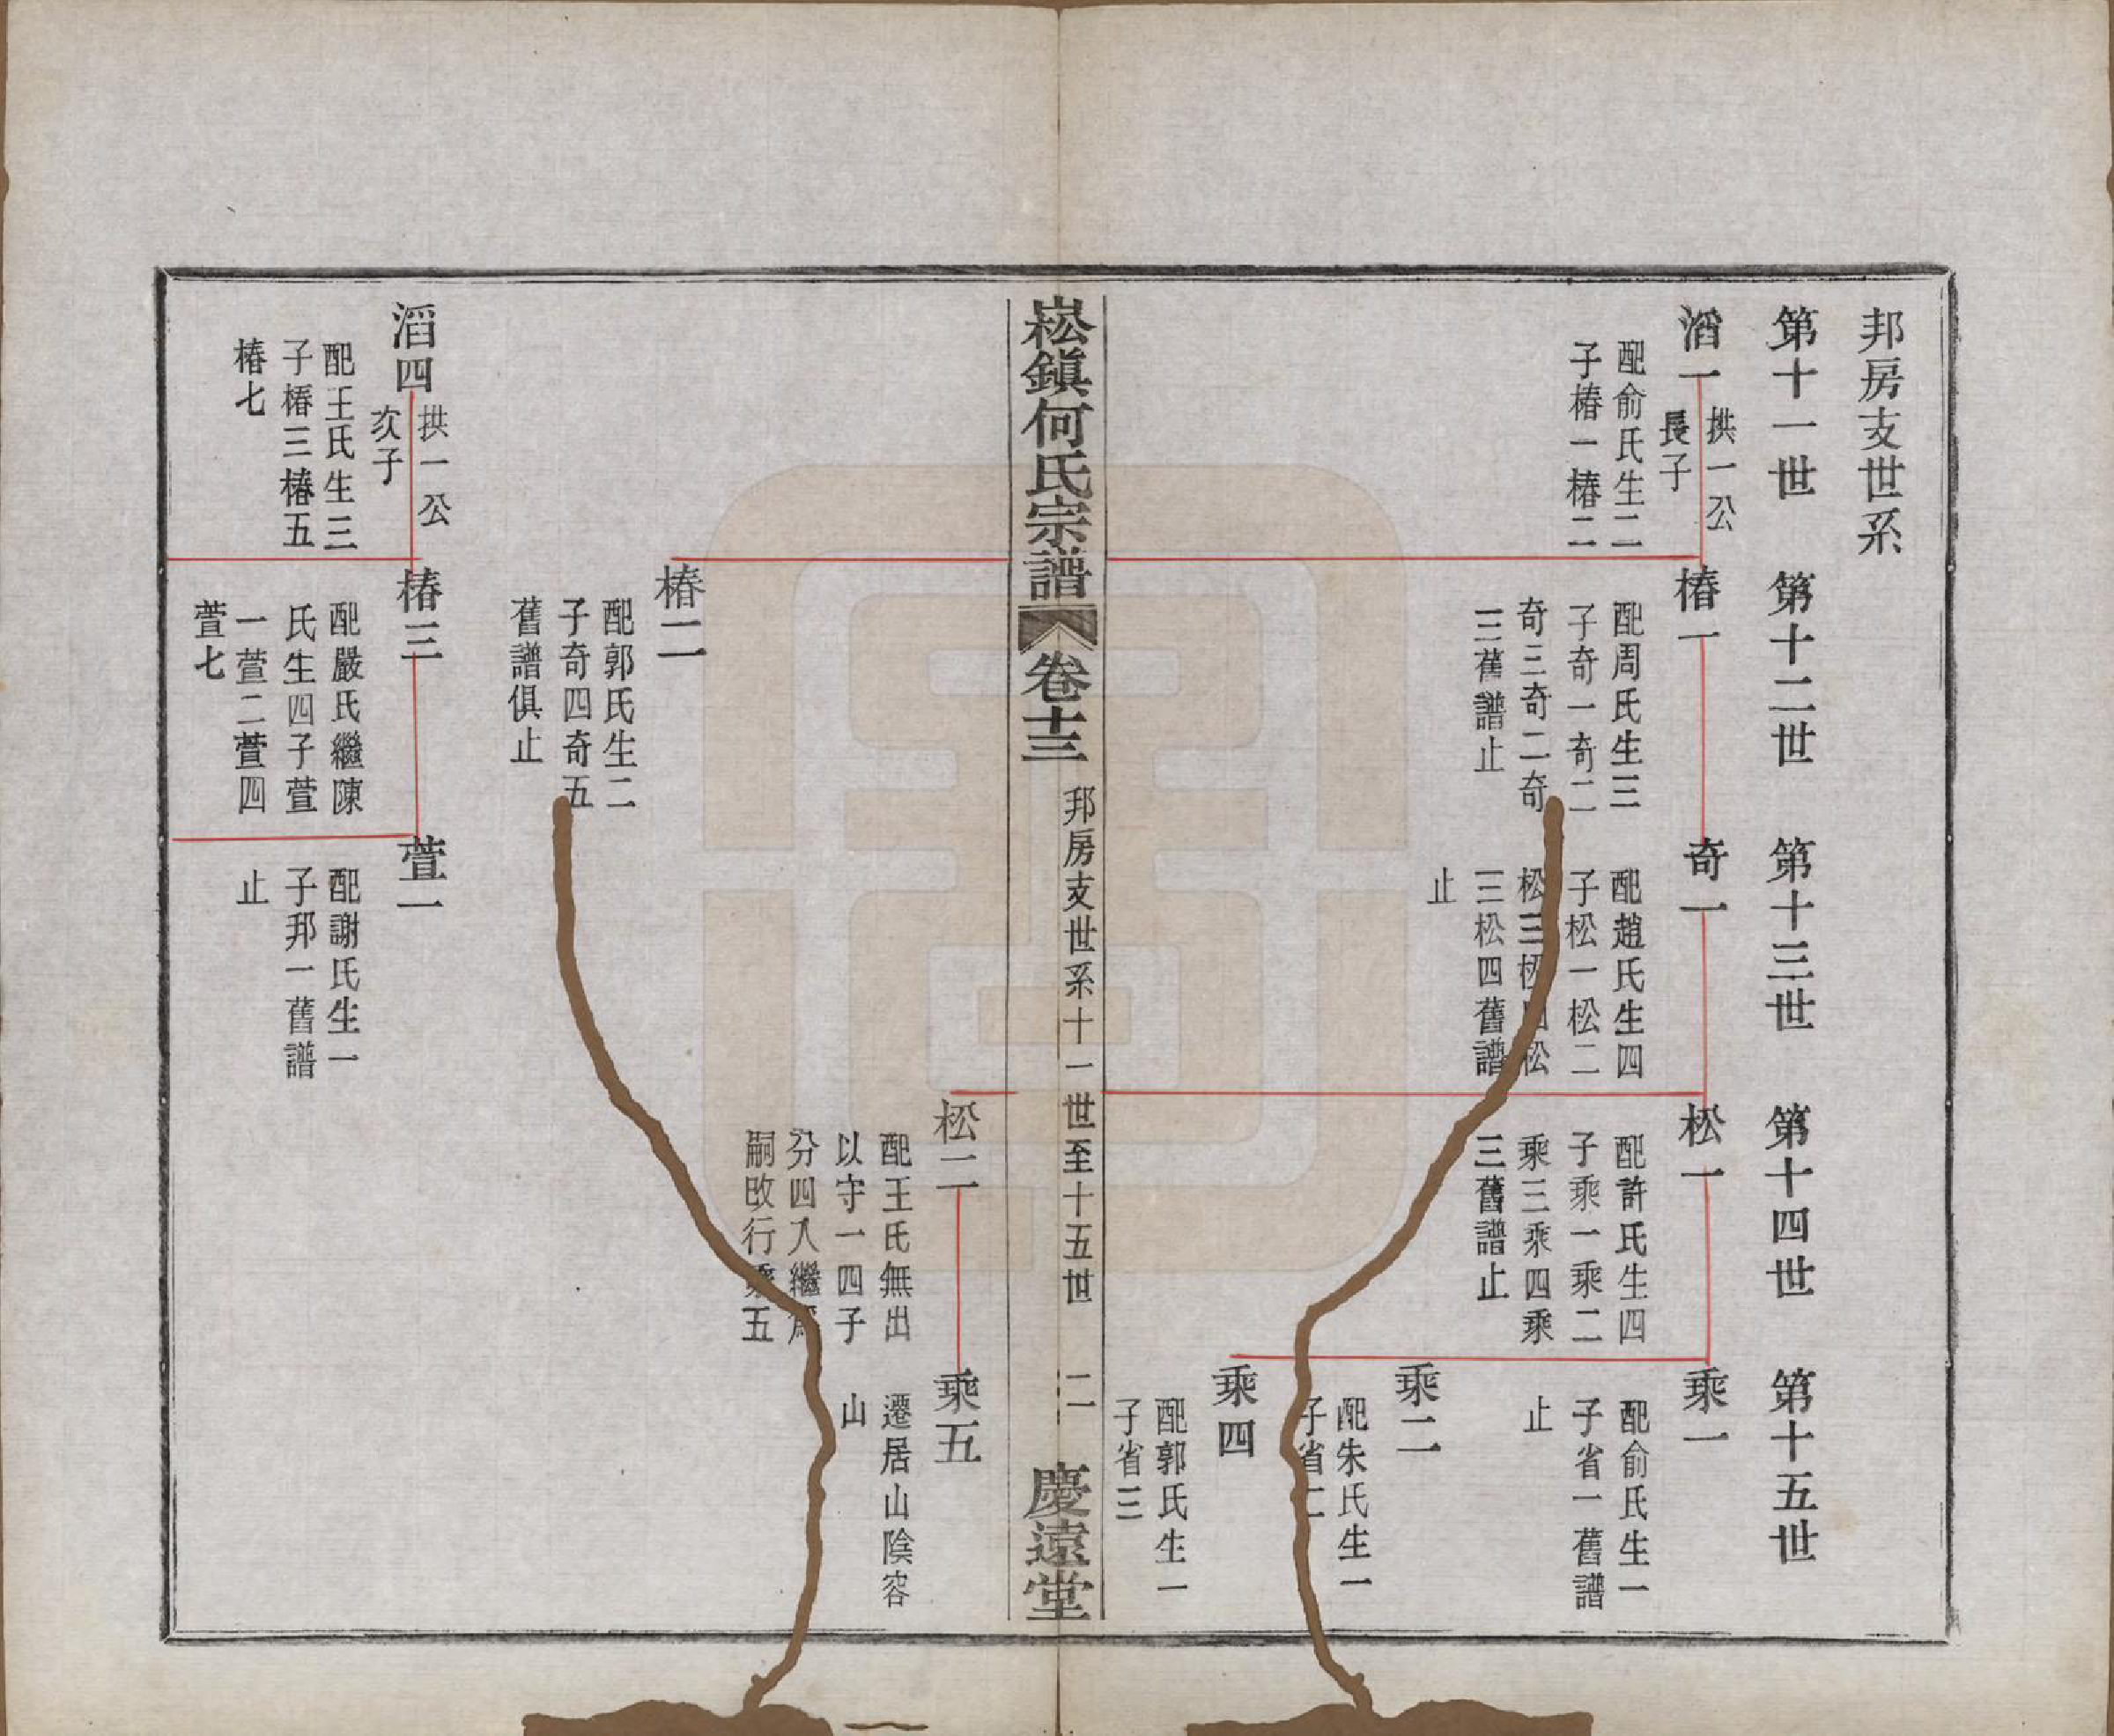 邦房支世系
第十一世 第十二世 第十三世 第十四世 第十五世
滔一
拱一公
長子
配俞氏生二
子椿一椿二
椿一
配周氏生三
子奇一奇二
奇三奇二奇
三舊譜止
奇一
配趙氏生四
子松一松二
松三松四松
三松四舊譜
止
松一
配許氏生四
子乘一乘二
乘三乘四乘
三舊譜止
乘一
配俞氏生一
子省一舊譜
止
乘二
配朱氏生一
子省二
乘四
配郭氏生一
子省三
崧鎮何氏宗譜
卷十三
邦房支世系十一世至十五世
二
慶遠堂
椿二
配郭氏生二
子奇四奇五
舊譜俱止
松二
配王氏無出
以守一四子
分四入繼爲
嗣改行乘五
乘五
遷居山陰容
山
滔四
拱一公
次子
配王氏生三
子椿三椿五
椿七
椿三
配嚴氏繼陳
氏生四子萱
一萱二萱四
萱七
萱一
配謝氏生一
子邦一舊譜
止